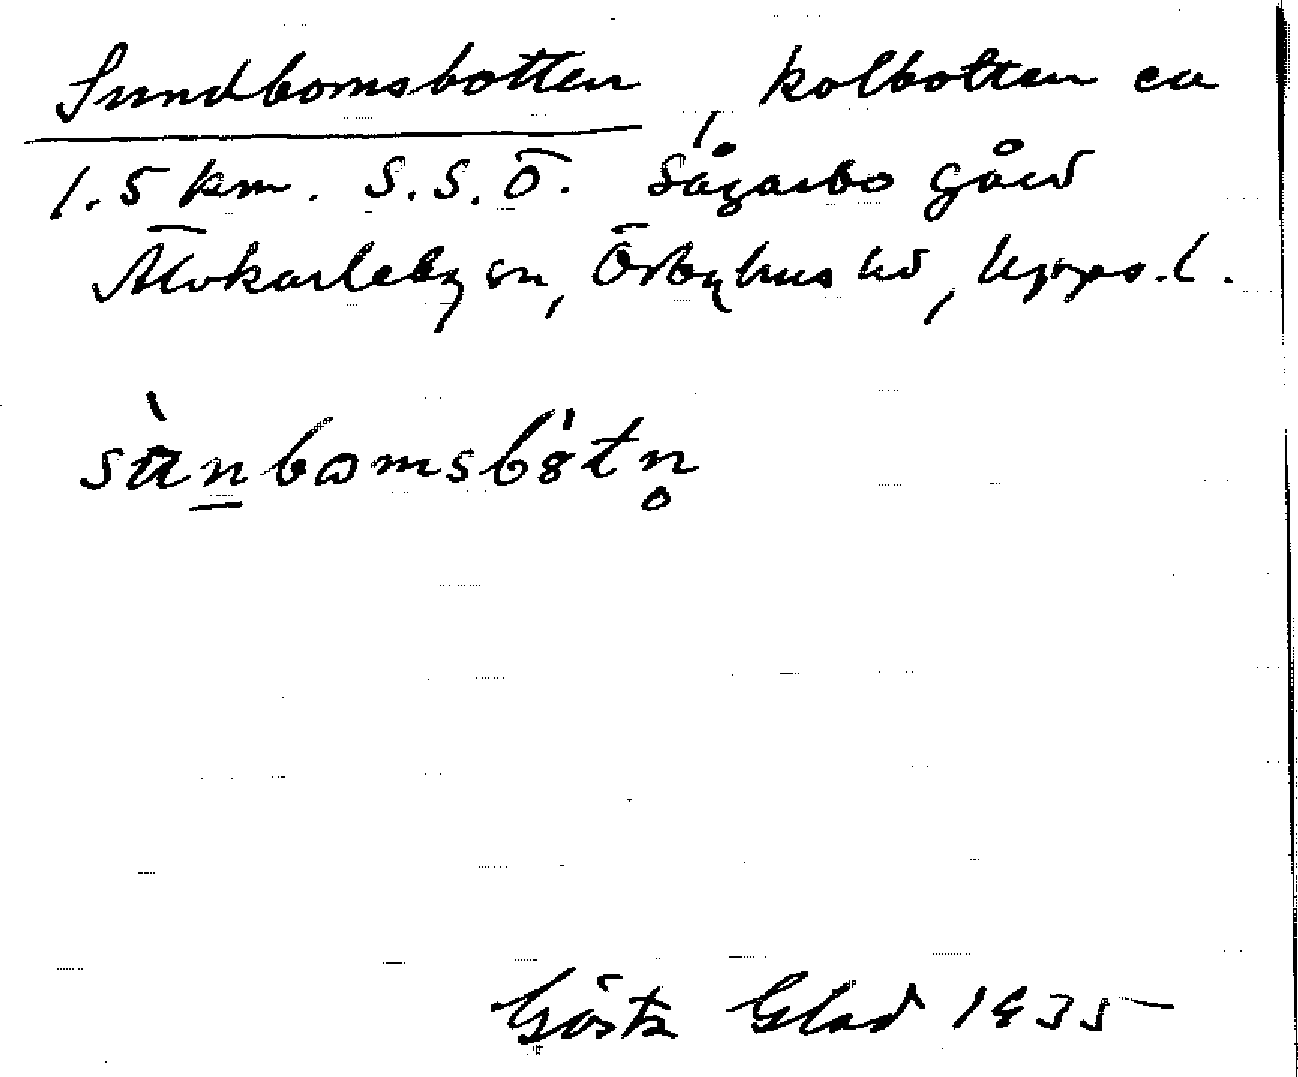 Sundbomsbotten, kolbotten ca
1.5 km. S.S.Ö. Sågarbo gård
Älvkarleby sn, Örbyhus hd, Upps. l.
sùn̲bωmsbótn̥
Gösta Glad 1935